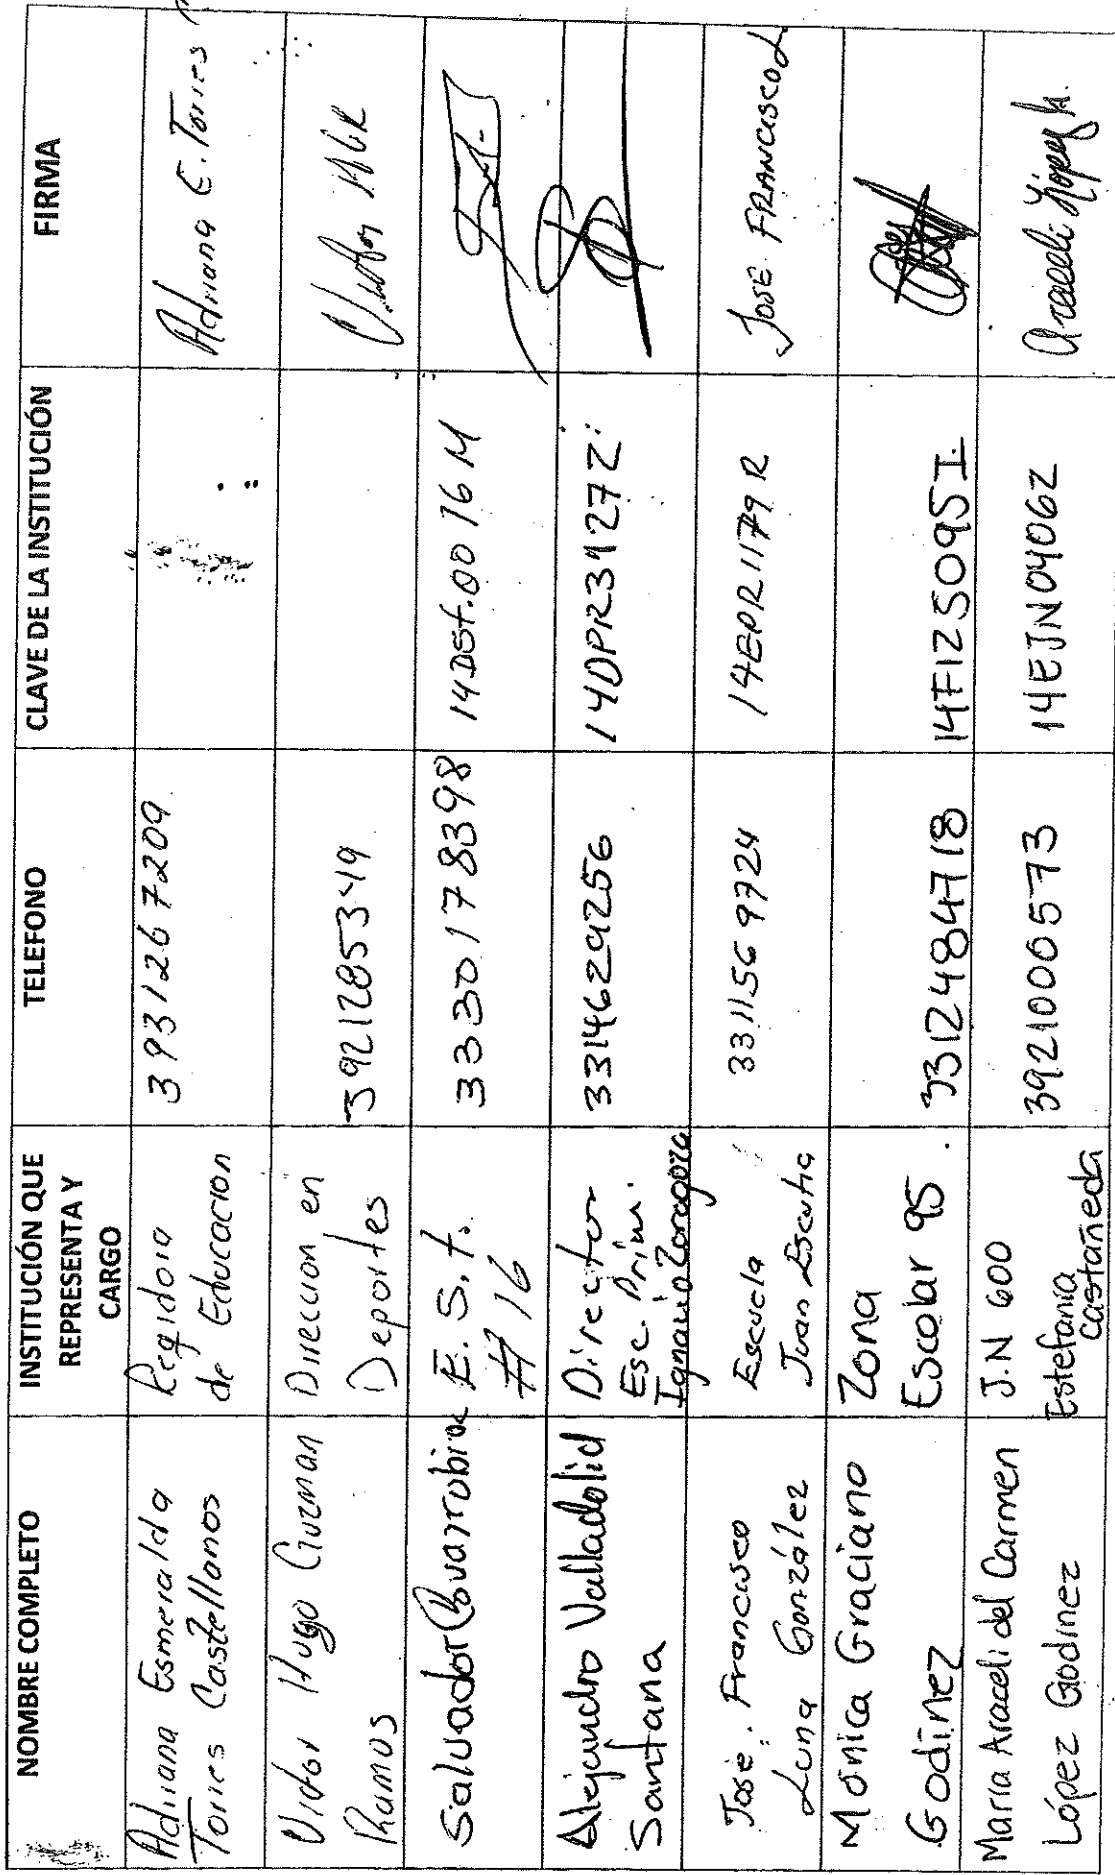 NOMBRE COMPLETO
INSTITUCIÓN QUE
REPRESENTA Y
CARGO
TELEFONO
CLAVE DE LA INSTITUCIÓN
FIRMA
Adriana Esmeralda
Torres Castellanos
Regidora
de Educacion
3931267209
Adriana E. Torres
Victor Hugo Guzman
Ramos
Direccion en
Deportes
3921285349
Victor HGR
Salvador Covarrubias
E. S. t.
# 16
3330178398
14DSt.0016M
Alejandro Valladolid
Santana
Director
Esc. Prim.
Ignacio Zaragoza
3314629256
14DPR3127Z
José. Francisco
Luna González
Escuela
Juan Escutia
3311569724
14EPR1179R
JOSE FRANCISCO L
Mónica Graciano
Godínez
Zona
Escolar 95.
3312484718
14FIZ5095I
María Araceli del Carmen
López Godínez
J.N 600
Estefanía
Castañeda
3921000573
14EJN0406Z
Araceli López h.